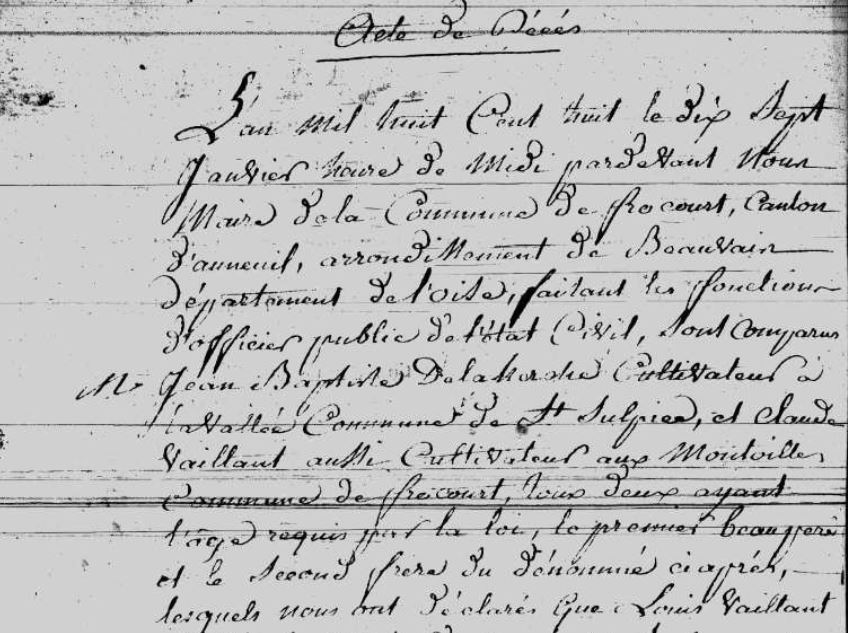 Acte de Décès
L'an mil huit Cent huit le dix Sept
Janvier heure de Midi pardevant Nous
Maire de la Commune de frocourt, Canton
d'auneuil, arrondissement de Beauvais
département de l'oise, faisant les fonctions
d'officier public de l'état Civil, sont Comparus
Mr Jean Baptiste Cultivateur à
laVallée Commune de St Sulpice, et Claude
Vaillant aussi Cultivateur aux
Commune de frocourt, tous deux ayant
l'age requis par la loi, le premier beaupere
et le Second frere du dénommé ciaprès,
lesquels nous ont déclarés que Louis Vaillant